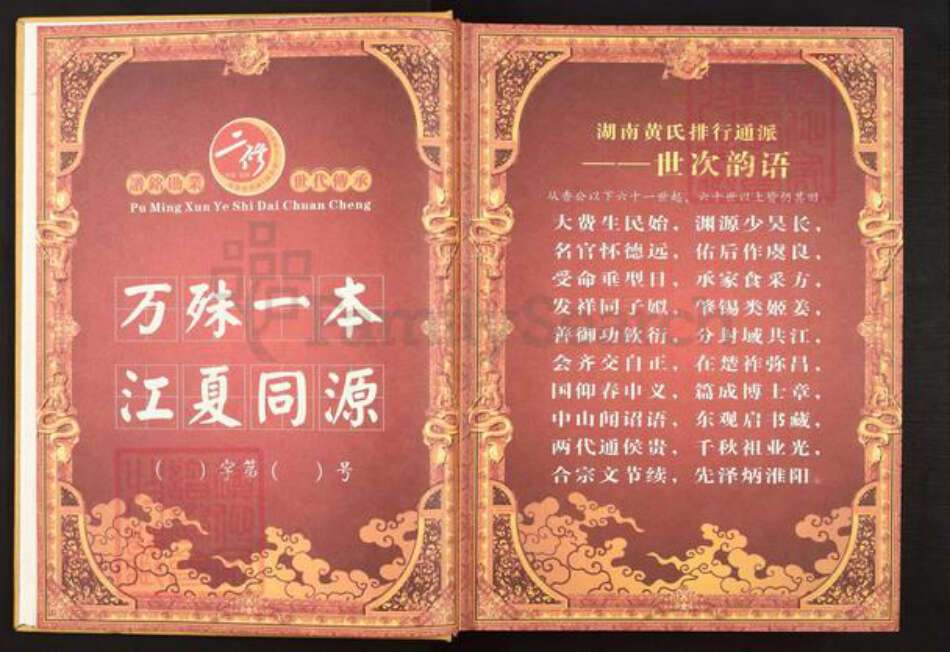 二修
譜銘勋業 世代傳承
Pu Ming Xun Ye Shi Dai Chuan Cheng
万殊一本
江夏同源
（ ）字第（ ）号
湖南黄氏排行通派
——世次韵语
从香公以下六十一世起，六十世以上皆仍其旧
大费生民始，渊源少吴长，
名官怀德远，佑后作虞良，
受命垂型日，承家食采方，
发祥同子姒，肇锡类姬姜，
善御功钦衍，分封域共江，
会齐交自正，在楚祚弥昌，
国仰春申义，篇成博士章，
中山闻诏语，东观启书藏，
两代通侯贵，千秋祖业光，
合宗文节续，先泽炳淮阳。
FamilySearch